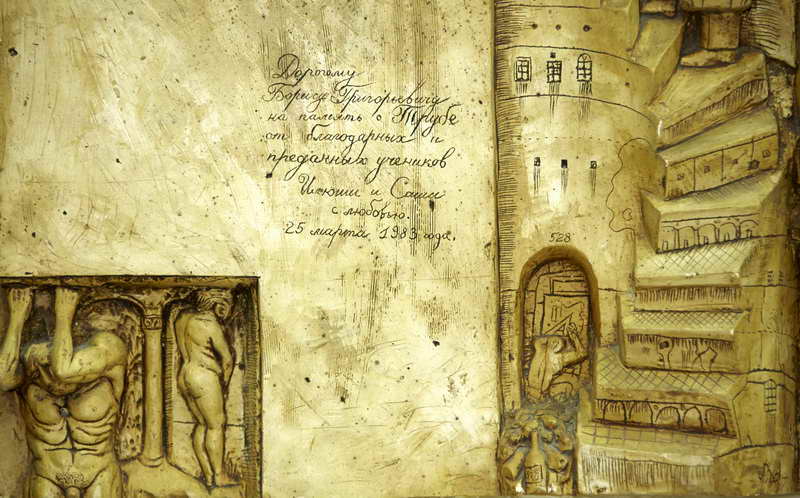 Дорогому
Борису Григорьевичу
на память о Трубе
от благодарных и
преданных учеников
и Саши
с любовью.
25 марта 1983 года.
528